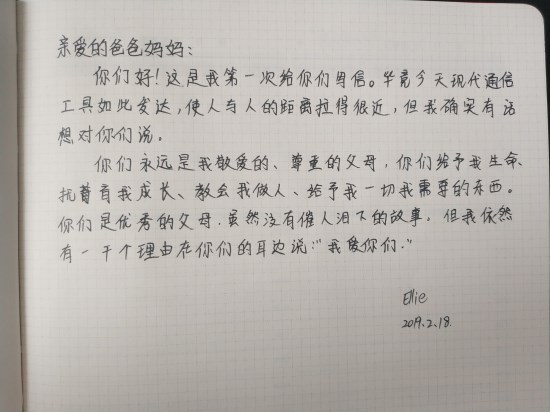 亲爱的爸爸妈妈：
你们好！这是我第一次给你们写信。毕竟今天现代通信
工具如此发达，使人与人的距离拉得很近，但我确实有话
想对你们说。
你们永远是我敬爱的、尊重的父母，你们给予我生命、
抚育着我成长、教会我做人、给予我一切我需要的东西。
你们是优秀的父母，虽然没有催人泪下的故事，但我依然
有一千个理由在你们的耳边说：“我爱你们。”
Ellie
2019.2.18.